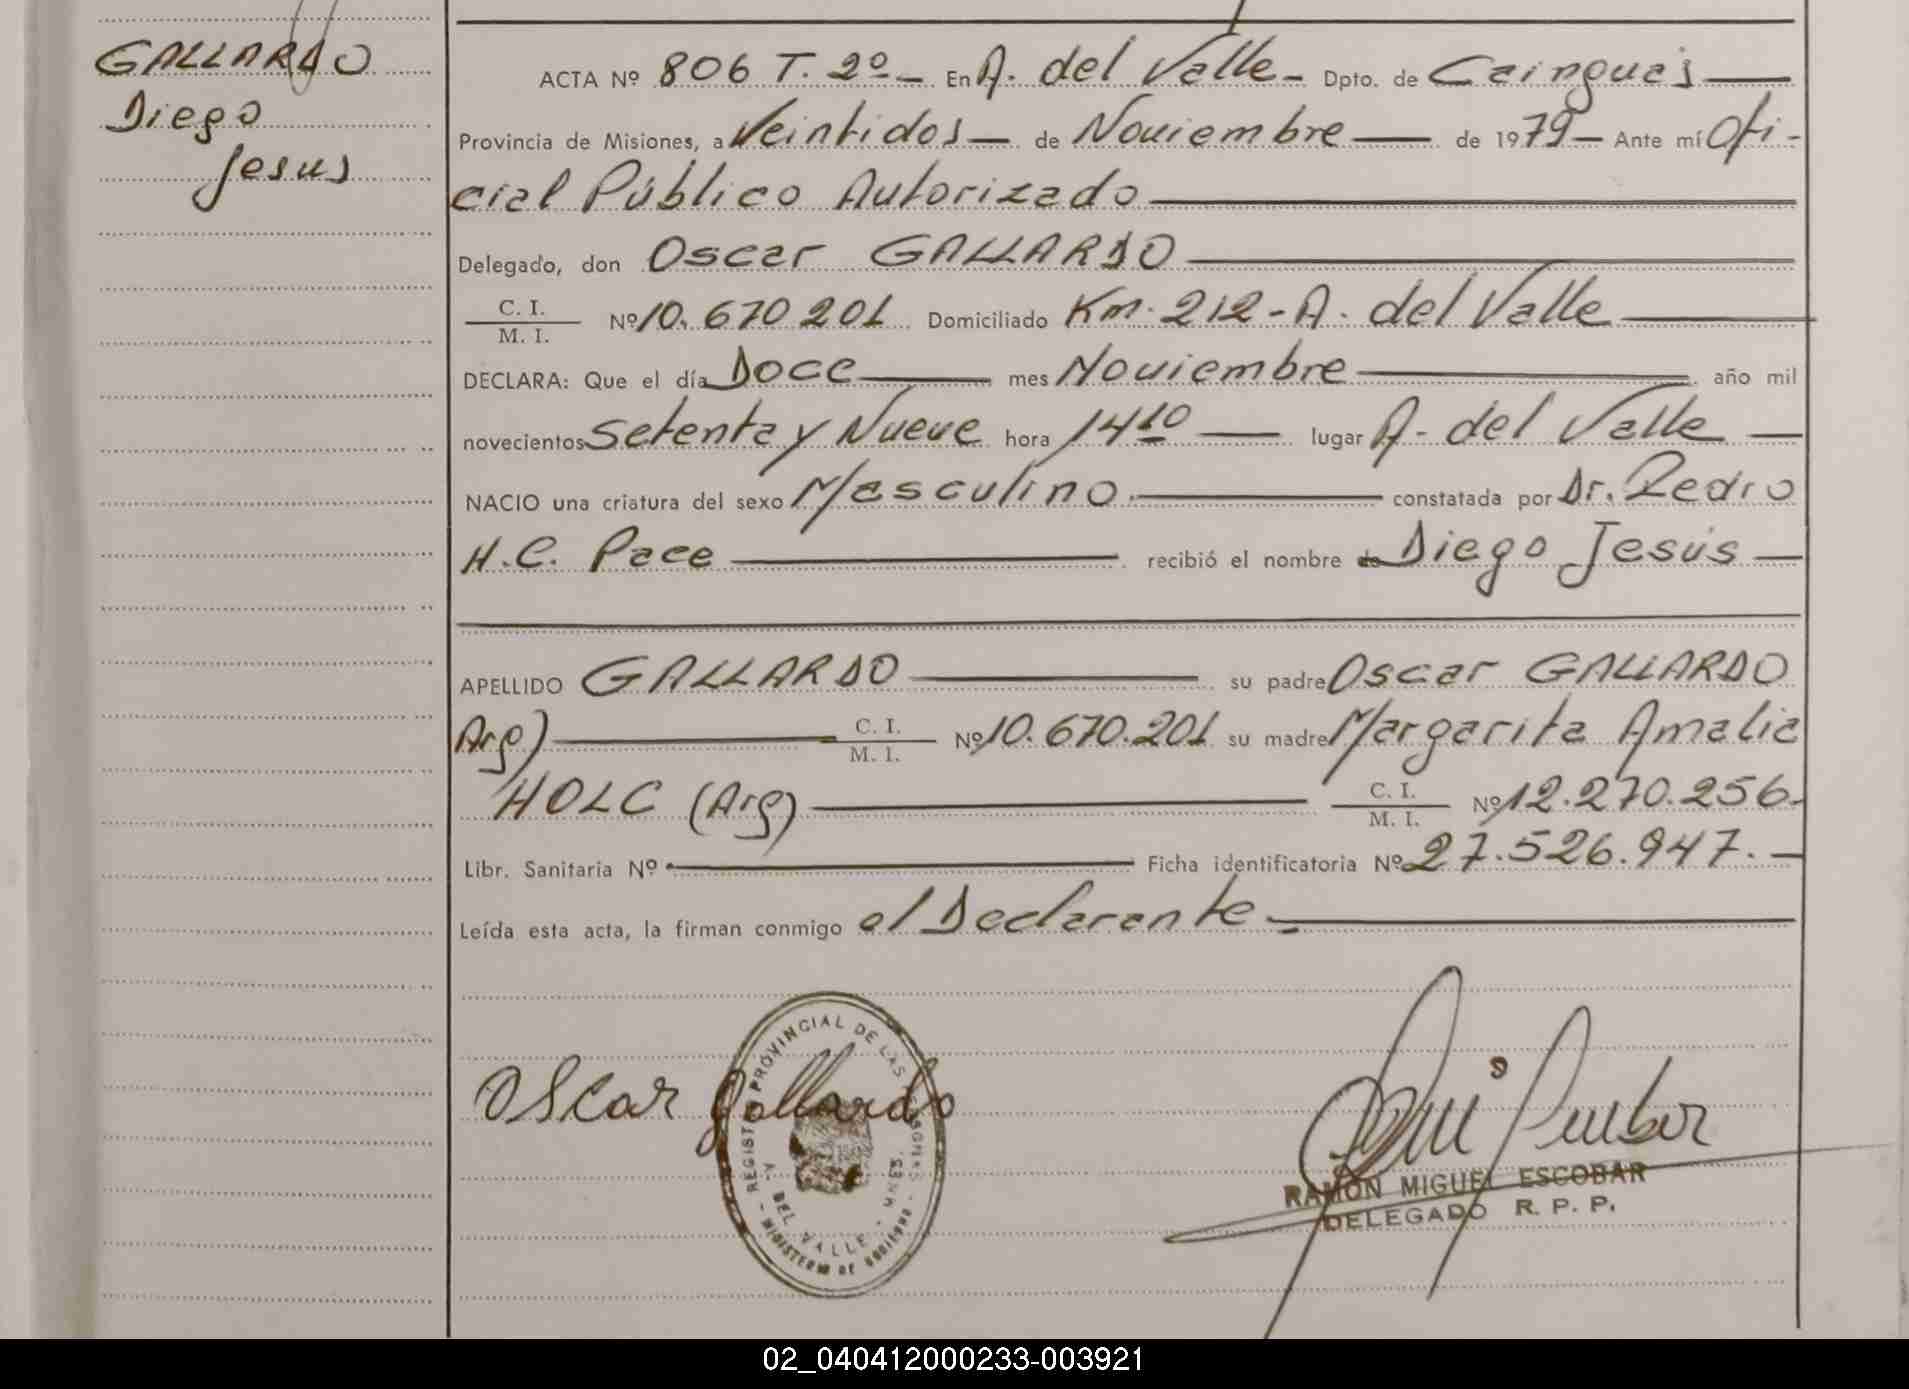 GALLARDO
Diego
Jesus
ACTA Nº 806 T. 2º - En A. del Valle - Dpto. de Cainguas
Provincia de Misiones, a Veintidos - de Noviembre - de 1979 - Ante mí Ofi-
cial Público Autorizado
Delegado, don Oscar GALLARDO
C. I.
M. I.
Nº 10.670.201 Domiciliado Km. 212 - A. del Valle
DECLARA: Que el día Doce mes Noviembre año mil
novecientos Setenta y Nueve hora 14 10 lugar A. del Valle
NACIO una criatura del sexo Masculino constatada por Dr. Pedro
H.C. Pace recibió el nombre de Diego Jesús
APELLIDO GALLARDO su padre Oscar GALLARDO
Arg) C. I.
M. I.
Nº 10.670.201 su madre Margarita Amalia
HOLC (Arg) C. I.
M. I.
Nº 12.270.256.
Libr. Sanitaria Nº Ficha identificatoria Nº 27.526.947.
Leída esta acta, la firman conmigo el Declarante.
Oscar Gallardo
REGISTRO PROVINCIAL DE LAS PERSONAS
A. DEL VALLE - MNES.
MINISTERIO DE GOBIERNO
RAMON MIGUEL ESCOBAR
DELEGADO R. P. P.
02_040412000233-003921